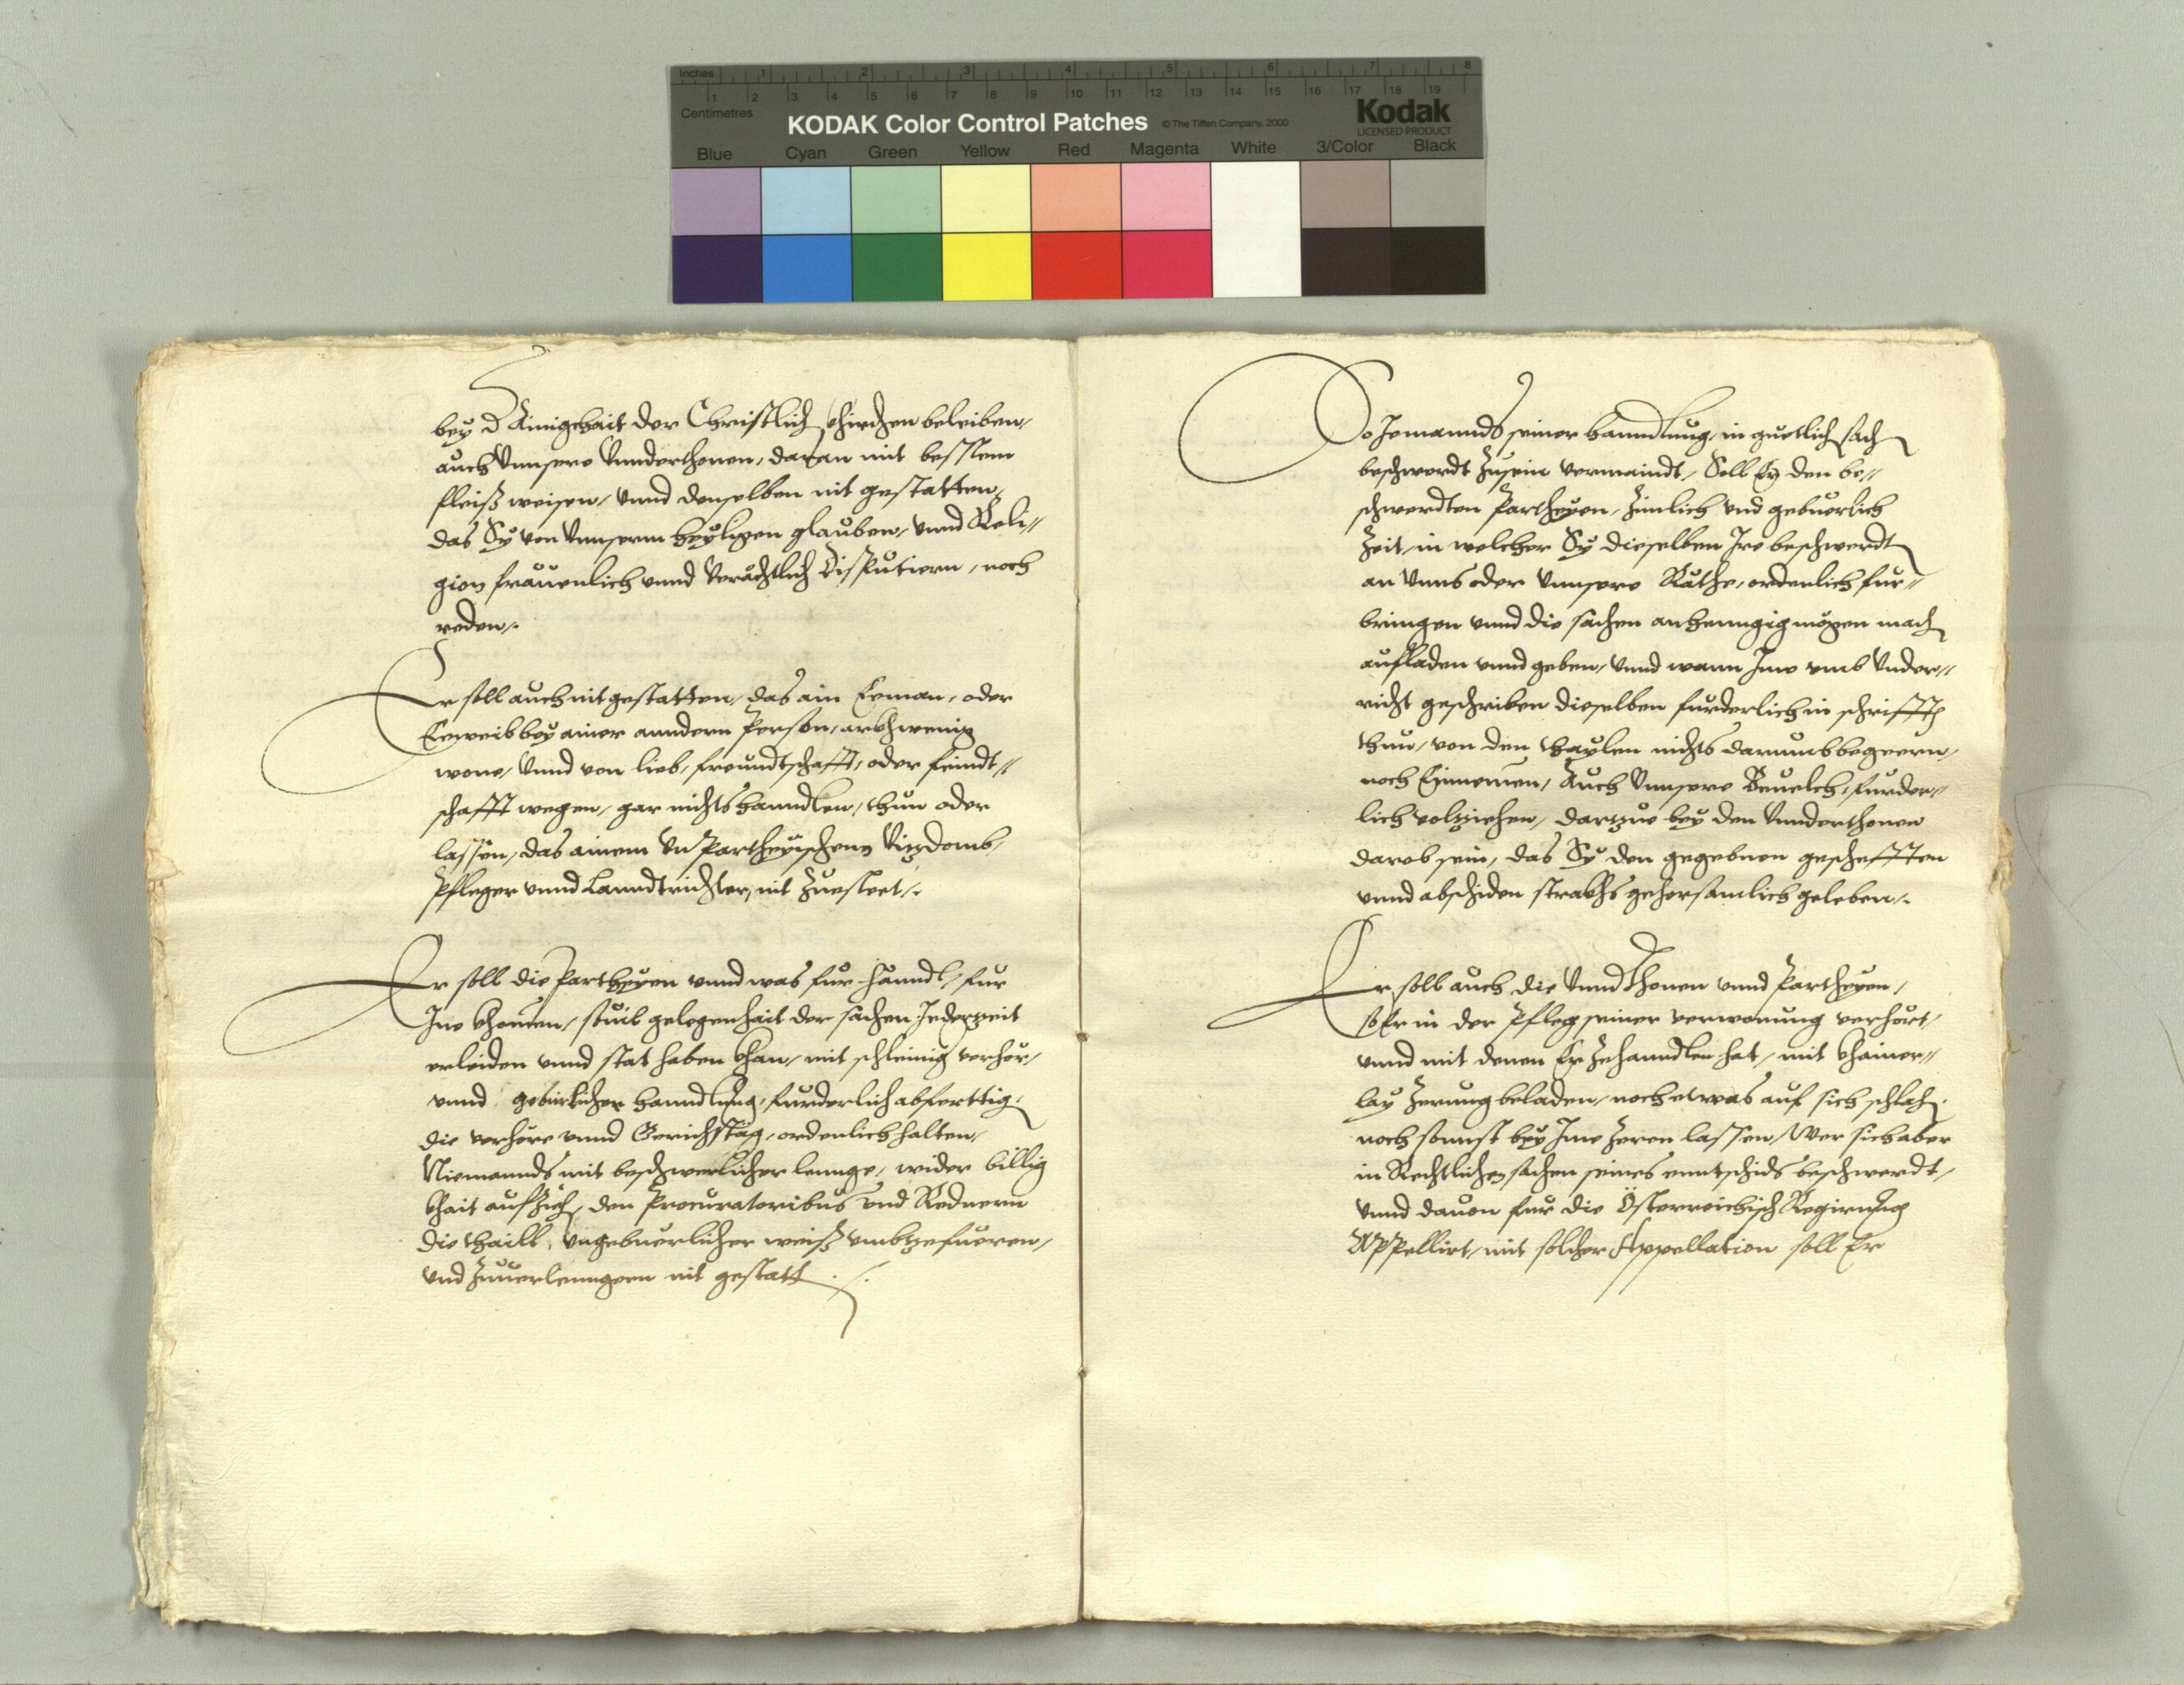 Inches 1 2 3 4 5 6 7 8
Centimetres 1 2 3 4 5 6 7 8 9 10 11 12 13 14 15 16 17 18 19
KODAK Color Control Patches © The Tiffen Company, 2000 Kodak
LICENSED PRODUCT
Blue Cyan Green Yellow Red Magenta White 3/Color Black
bey d Ainigkhait der Christlich khirchen beleiben,
auch Vnnsere Vnnderthonen, daran mit besstem
fleiß weisen, vnnd denselben nit gestatten,
das Sy von Vnnserm heyligen glauben, vnnd Reli//
gion fräuenlich vnnd verächtlich Disputiern, noch
reden/.
Er soll auch nit gestatten, das ain Eeman, oder
Eeweib bey ainer anndern Person, archwenig
wone, Vnnd von lieb, freundtschafft, oder feindt//
schafft wegen, gar nichts hanndlen, thun oder
lassen, das ainem Vn Partheyischenn Vizdomb,
Pfleger vnnd Lanndtrichter, nit zuesteet/.
Er soll die Partheyen vnnd was für hänndl, für
Ime khomen, souil gelegenhait der sachen Jederzeit
erleiden vnnd stat haben khan, mit schleinig verhör,
vnnd gebürlicher hanndlung, furderlich abferttig.
die verhöre vnnd Gerichtstäg, ordenlich halten,
Niemannds mit beschwerlicher lennge, wider billig
khait aufzieh, den Procuratoribus vnd Rednern
die thaill, vngebuerlicher weiß vmbzefueren,
vnd zuuerlenngern nit gestatt ./.
So Jemannds seiner hanndlung, in guetlich sach
beschwerdt zusein vermaindt, Soll Er den be//
schwerdten Partheyen, zimlich vnd gebuerlich
Zeit, in welcher Sy dieselben Ire beschwerdt
an Vnns oder Vnnsere Räthe, ordenlich für//
bringen vnnd die sachen anhenngig mögen mach
aufladen vnnd geben, Vnnd wann Ime vmb Vnder//
richt geschriben dieselben furderlich in schrifften
thun, von den thaylen nichts darumb begeern,
noch Einnemen, Auch Vnnsere Beuelch, furder//
lich volziehen, dartzue bey den Vnnderthonen
darob sein, das Sy den gegebnen geschefften
vnnd abschiden strakhs gehorsamlich geleben/.
Er soll auch die Vnndthonen vnnd Partheyen,
so Er in der Pfleg seiner verwonung verhört,
vnnd mit denen Er zehanndlen hat, mit khainer//
lay Zerung beladen, noch etwas auf sich schlah.
noch sonnst bey Ime Zeren lassen, Wer sich aber
in Rechtlichen sachen seines enntschids beschwerdt,
vnnd dauon für die Österreichisch Regierung
Appellirt, mit solcher Appellation soll Er